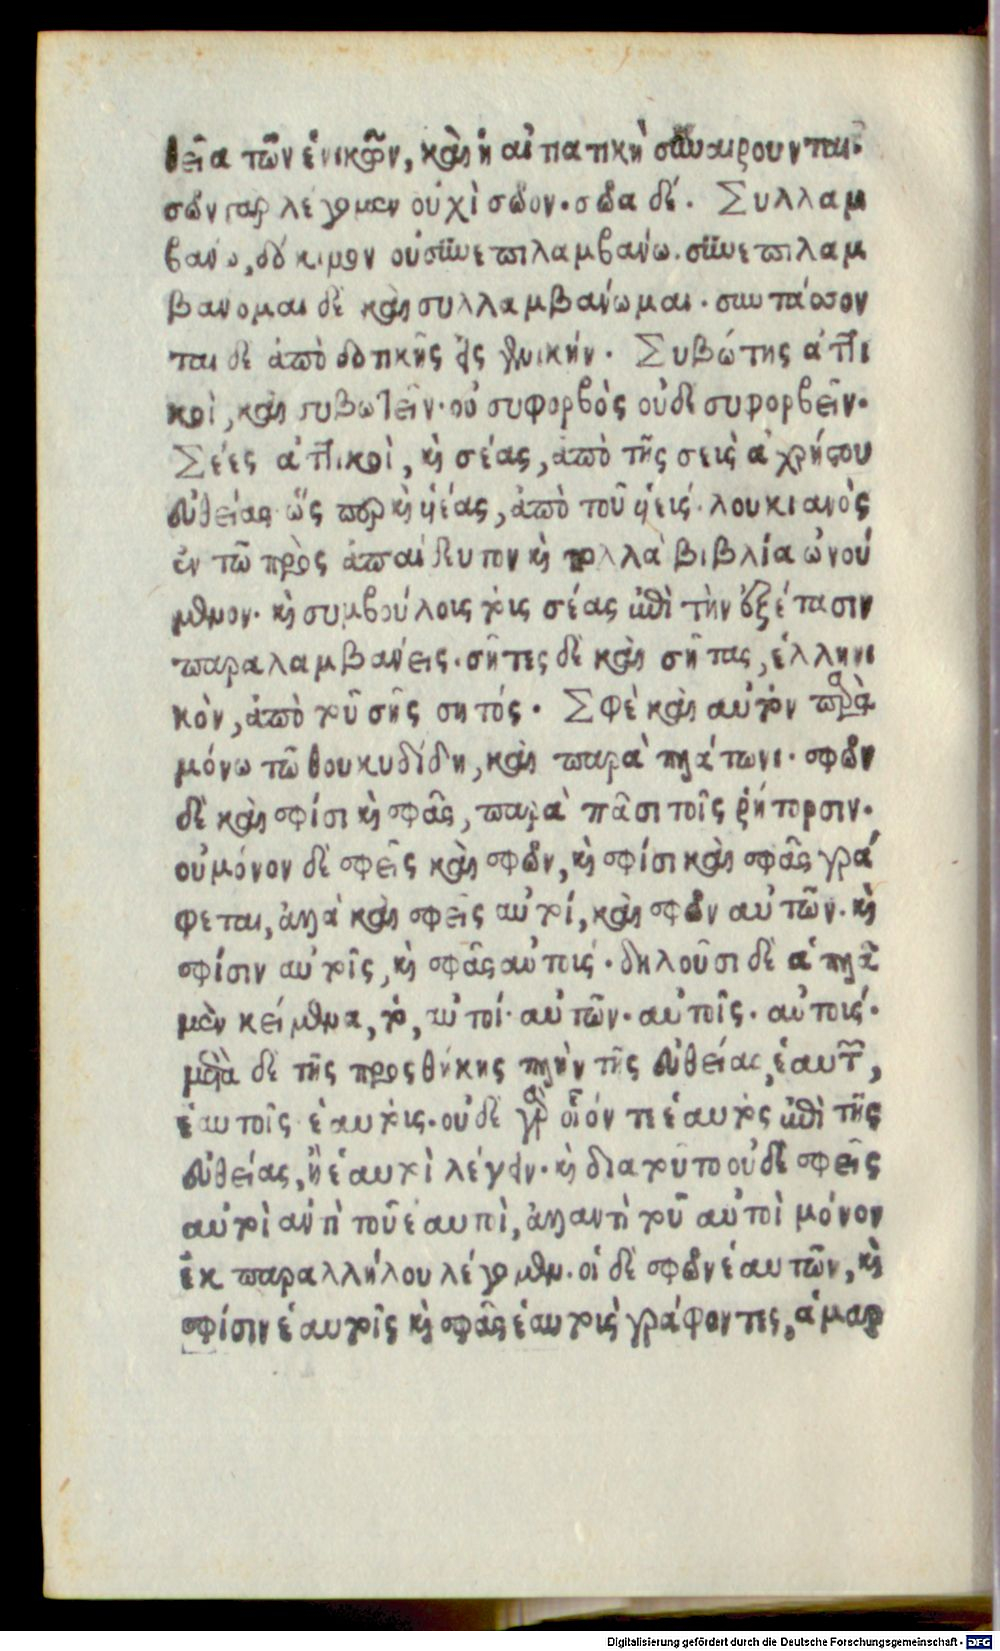 θεῖα τῶν ἑνικῶν, καὶ ἡ αἰτιατικὴ συναιροῦνται·
σῶν γαρ λέγομεν οὐχὶ σῶον· σῶα δέ. Συλλαμ
βανω, δόκιμον οὐ συνεπιλαμβανω. συνεπιλαμ
βανομαι δὲ καὶ συλλαμβανωμαι· συντάσσον
ται δὲ ἀπὸ δοτικῆς εἰς γενικήν. Συβώτης ἀττι
κοὶ, καὶ συβωτεῖν· οὐ συφορβὸς οὐδὲ συφορβεῖν.
Σέες ἀττικοὶ, καὶ σέας, ἀπὸ τῆς σεις ἀχρήστου
εὐθείας ὥς περ καὶ ἡέας, ἀπὸ τοῦ ἡεις. λουκιανὸς
ἐν τῶ πρὸς ἀπαίδευτον καὶ πολλὰ βιβλία ὠνού
μενον. καὶ συμβούλοις τοις σέας ἐπὶ τὴν ἐξέτασιν
παραλαμβάνεις. σῆτες δὲ καὶ σῆτας, ἑλληνι
κὸν, ἀπὸ τοῦ σῆς σητός. Σφὲ καὶ αὐτὸν παρὰ
μόνω τῶ θουκυδίδη, καὶ παρὰ πλάτωνι. σφῶν
δὲ καὶ σφίσι καὶ σφᾶς, παρὰ πᾶσι τοῖς ῥήτορσιν.
οὐ μόνον δὲ σφεῖς καὶ σφῶν, καὶ σφίσι καὶ σφᾶς γρά
φεται, ἀλλὰ καὶ σφεῖς αὐτοί, καὶ σφῶν αὐτῶν. καὶ
σφίσιν αὐτοῖς, καὶ σφᾶς αὐτούς. δηλοῦσι δὲ ἁπλᾶ
μὲν κείμενα, τό, αὐτοί· αὐτῶν· αὐτοῖς. αὐτούς.
μετὰ δὲ τῆς προσθήκης πλὴν τῆς εὐθείας, ἑαυτῶν,
ἑαυτοῖς ἑαυτούς. οὐδὲ γὰρ οἷόν τε ἑαυτὸς ἐπὶ τῆς
εὐθείας, ἢ ἑαυτοὶ λέγειν. καὶ διατοῦτο οὐδὲ σφεῖς
αὐτοὶ ἀντὶ τοῦ ἑαυτοὶ, ἀλλ' αντὶ τοῦ αὐτοὶ μόνον
ἐκ παραλλήλου λέγομεν. οἱ δὲ σφῶν ἑαυτῶν, καὶ
σφίσιν ἑαυτοῖς καὶ σφᾶς ἑαυτοὺς γράφοντες, ἁμαρ
Digitalisierung gefördert durch die Deutsche Forschungsgemeinschaft - DFG